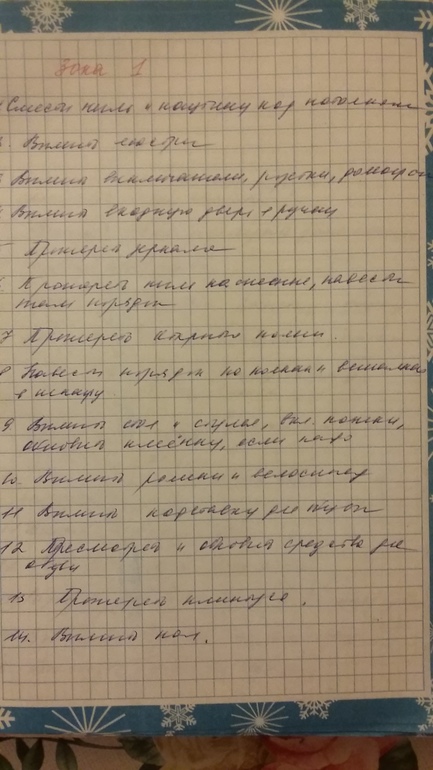 Зона 1
Смести пыль и паутину под потолком
Вымыть люстры
Вымыть выключатели, розетки, домофон
Вымыть входную дверь + ручки
Протереть зеркала
Протереть пыль на, навести
там порядок
7 Протереть открытые полки.
8 Навести порядок на полках и вешалках
в шкафу.
9 Вымыть стол и стулья, вкл. ножки,
обновить клеёнку, если надо
10. Вымыть ролики и велосипед
11 Вымыть подставку для обуви
12 Пресмотреть и обновить средства для
обуви
13 Протереть плинтуса.
14. Вымыть пол.